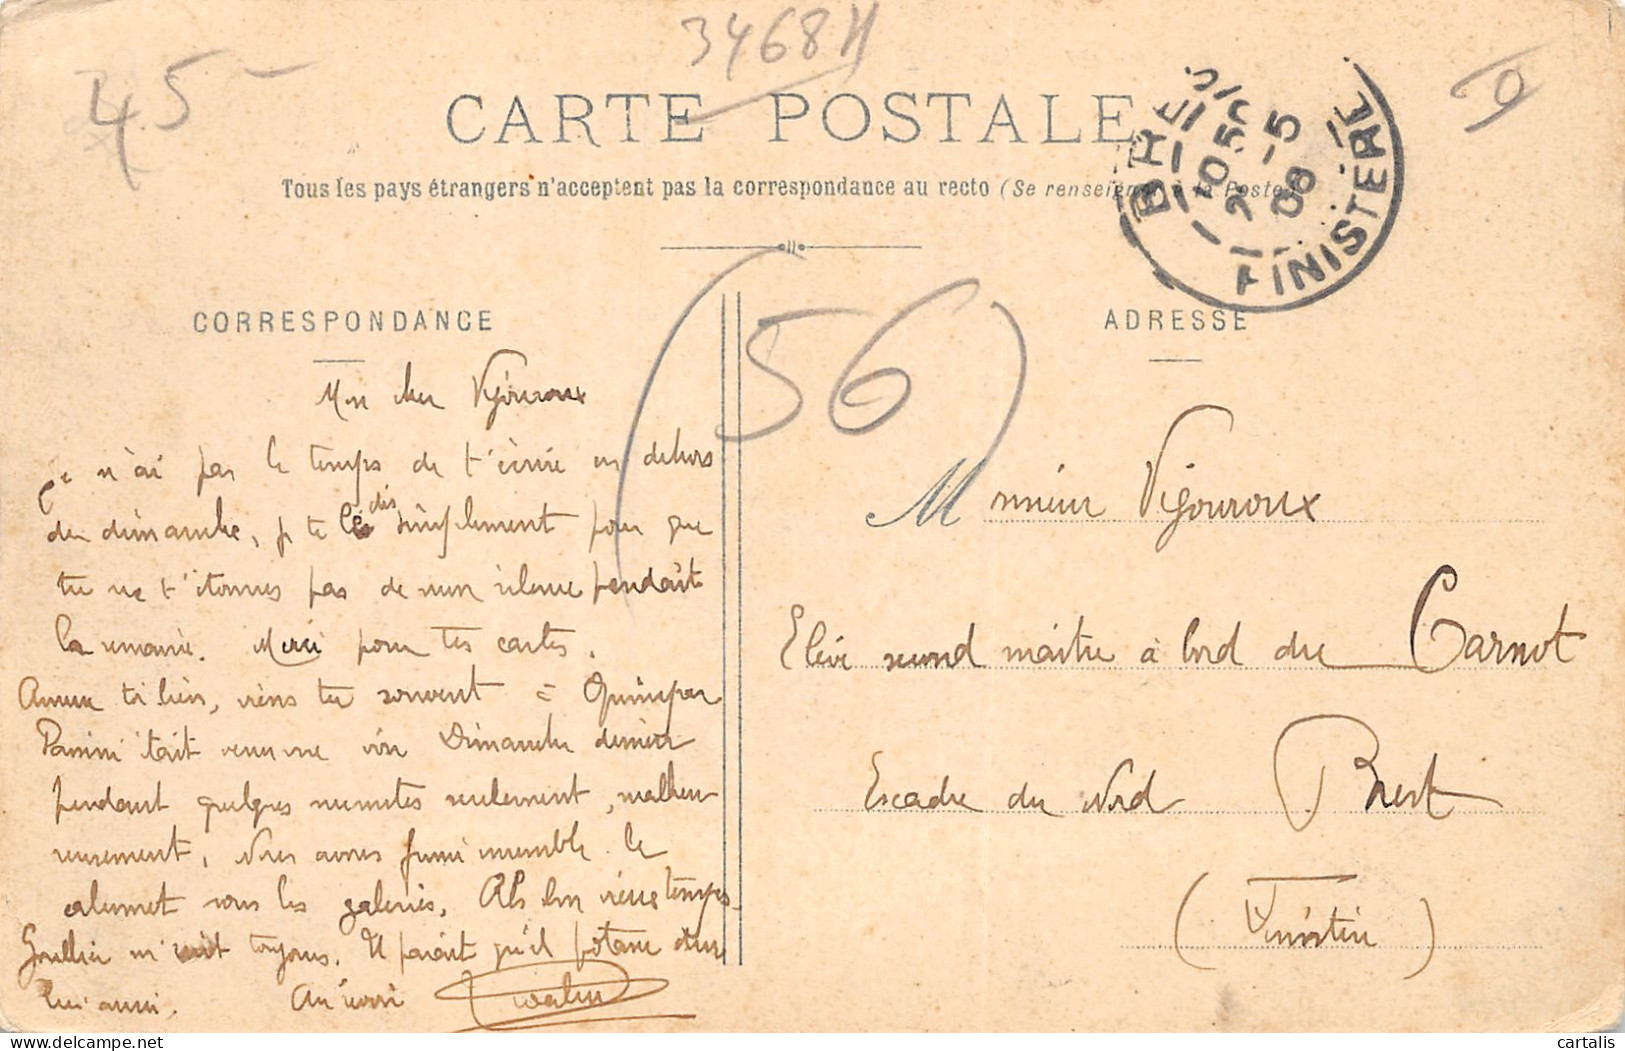 45 -
3468H
CARTE POSTALE
Tous les pays étrangers n'acceptent pas la correspondance au recto (Se renseigner à la Poste)
BREST
10 50
2 -5
08
FINISTERE
CORRESPONDANCE
(56)
ADRESSE
Mon cher Vigouroux
Je n'ai pas le temps de t'écrire en dehors
du dimanche, je te le dis simplement pour que
tu ne t'étonnes pas de mon silence pendant
la semaine. Merci pour tes cartes.
Amuse toi bien, viens tu souvent à Quimper
était venu me voir Dimanche dernier
pendant quelques minutes seulement, malheu
reusement, Nous avons fumé ensemble le
calumet sous les galeries. Ah bon vieux temps
m'écrit toujours. Il paraît qu'il potasse dur
lui aussi. Au revoir
Monsieur Vigouroux
Elève second maître à bord du Carnot
Escadre du Nord Brest
(Finistère)
cartalis